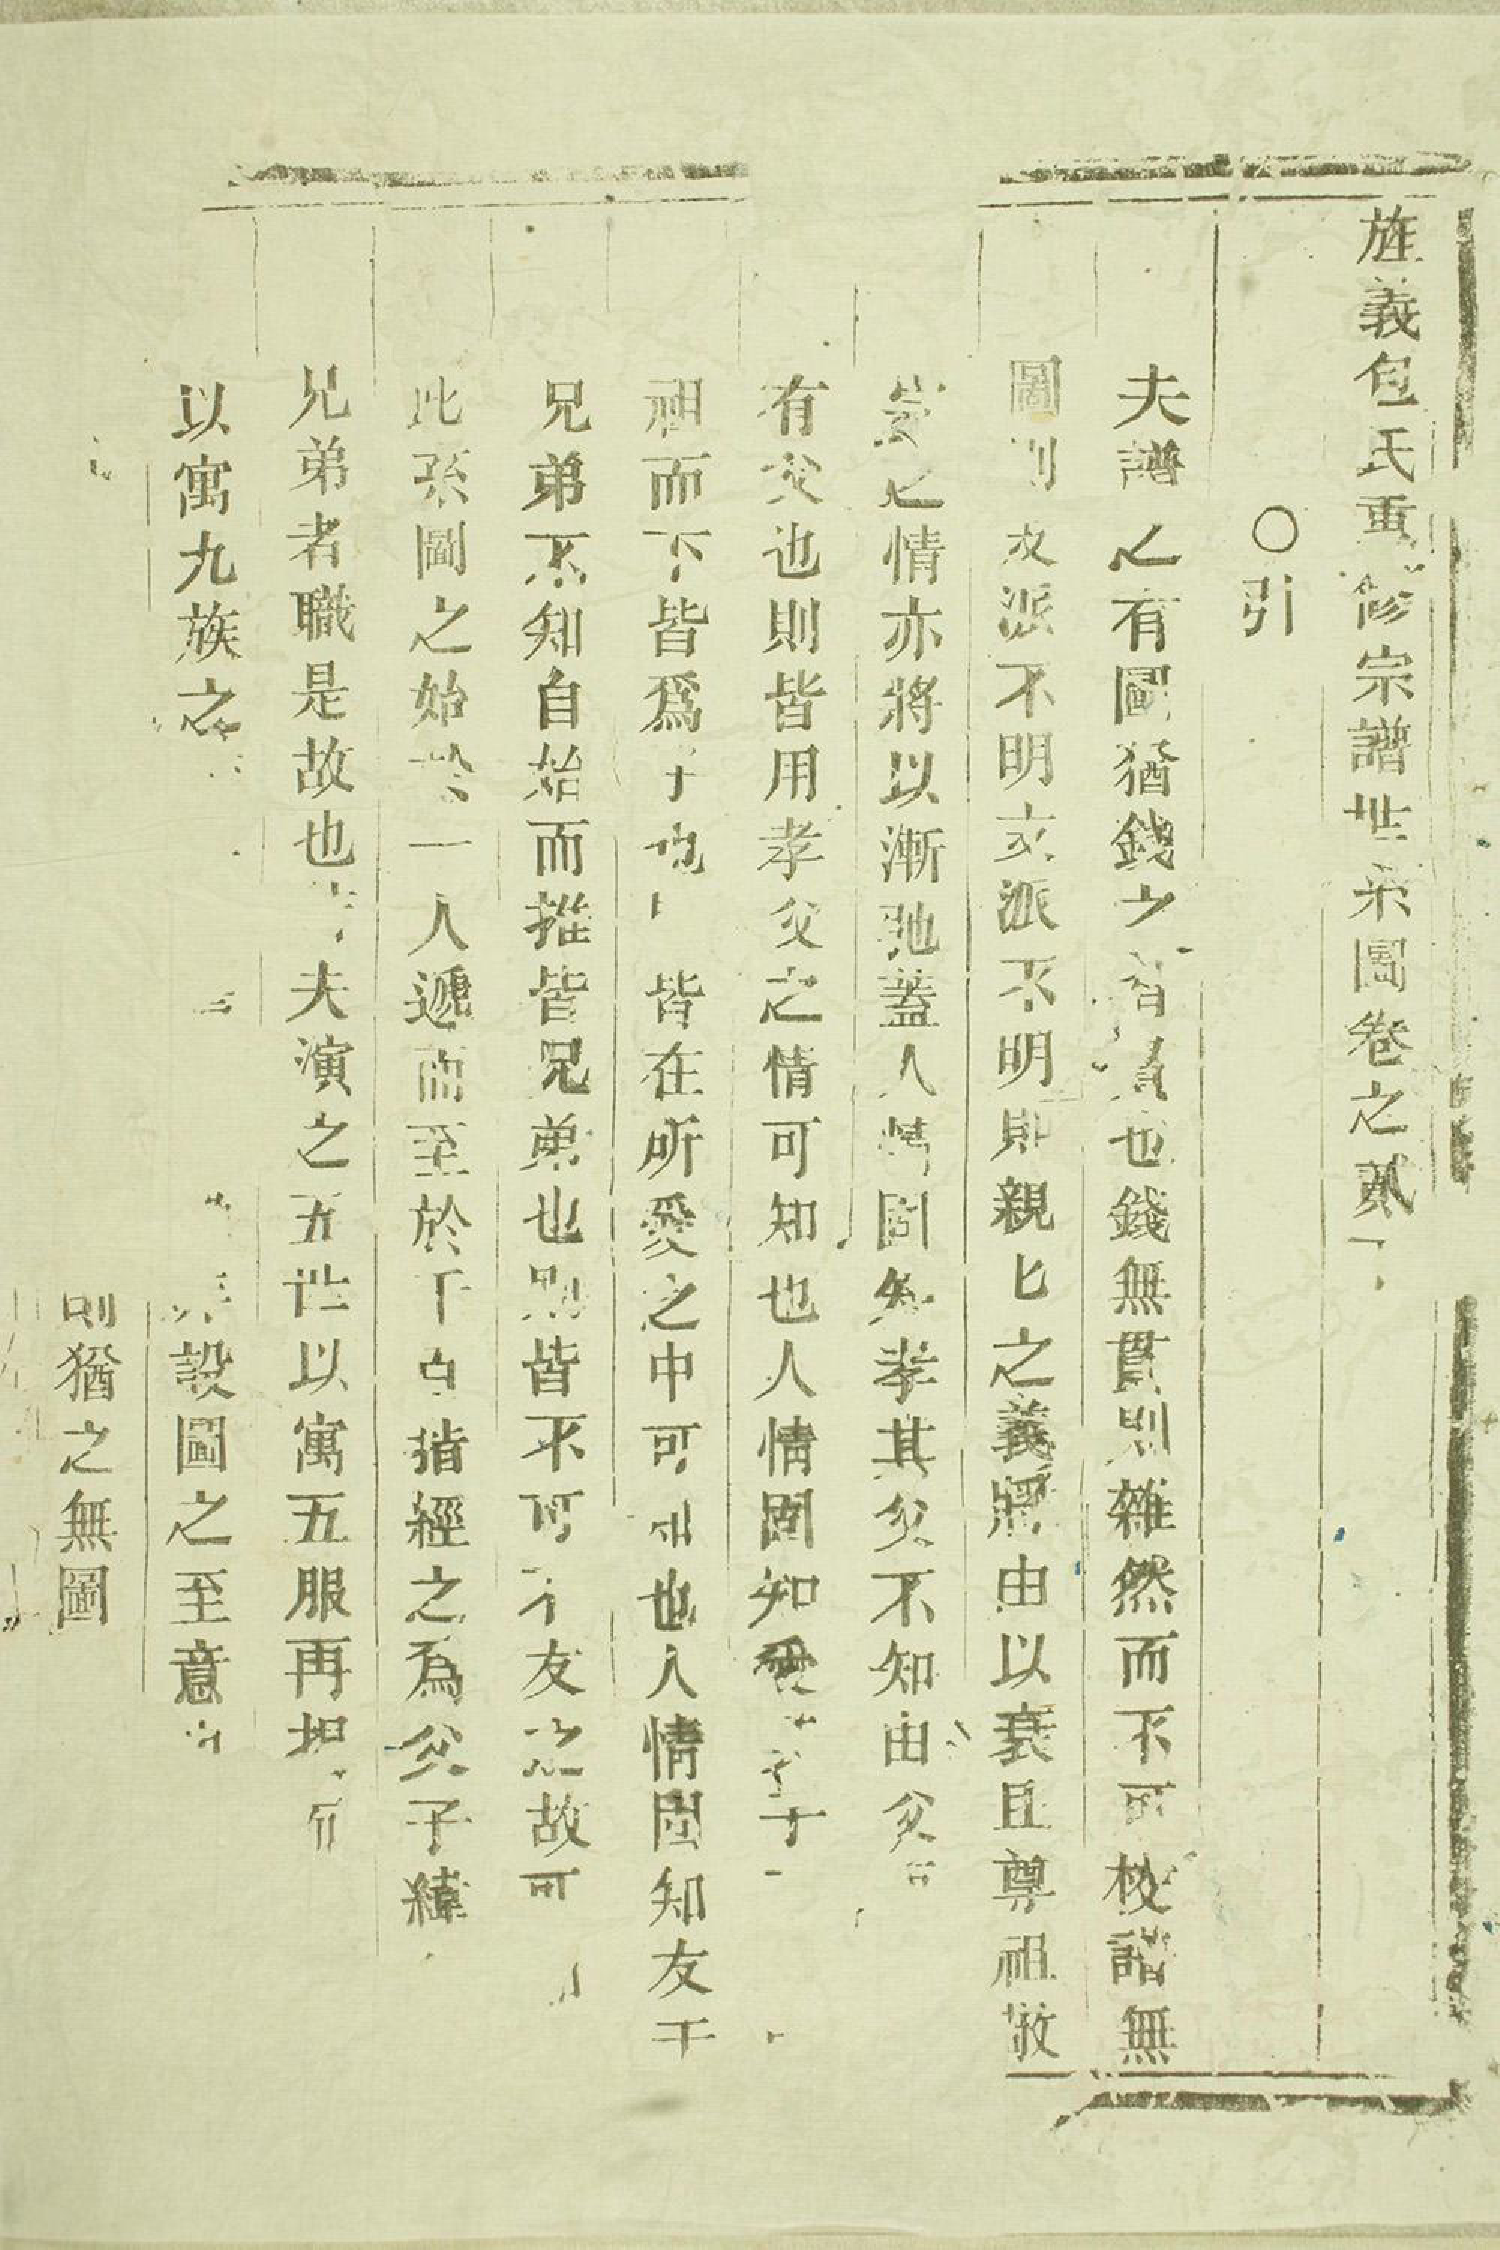 旌義包氏重修宗譜世系圖卷之貳
○引
夫譜之有圖猶錢之有貫也錢無貫則雜然而不可校譜無
圖則支派不明支派不明則親匕之義將由以衰且尊祖敬
宗之情亦將以漸弛蓋人情固知孝其父不知由父
有父也則皆用孝父之情可知也人情固知愛子
祖而下皆爲子也 皆在所愛之中可知也人情固知友于
兄弟不知自始而推皆兄弟也則皆不可不友之故可
此系圖之始於一人遞而至於千百指經之爲父子緯
兄弟者職是故也 夫演之五世以寓五服再
以寓九族之 設圖之至意
則猶之無圖